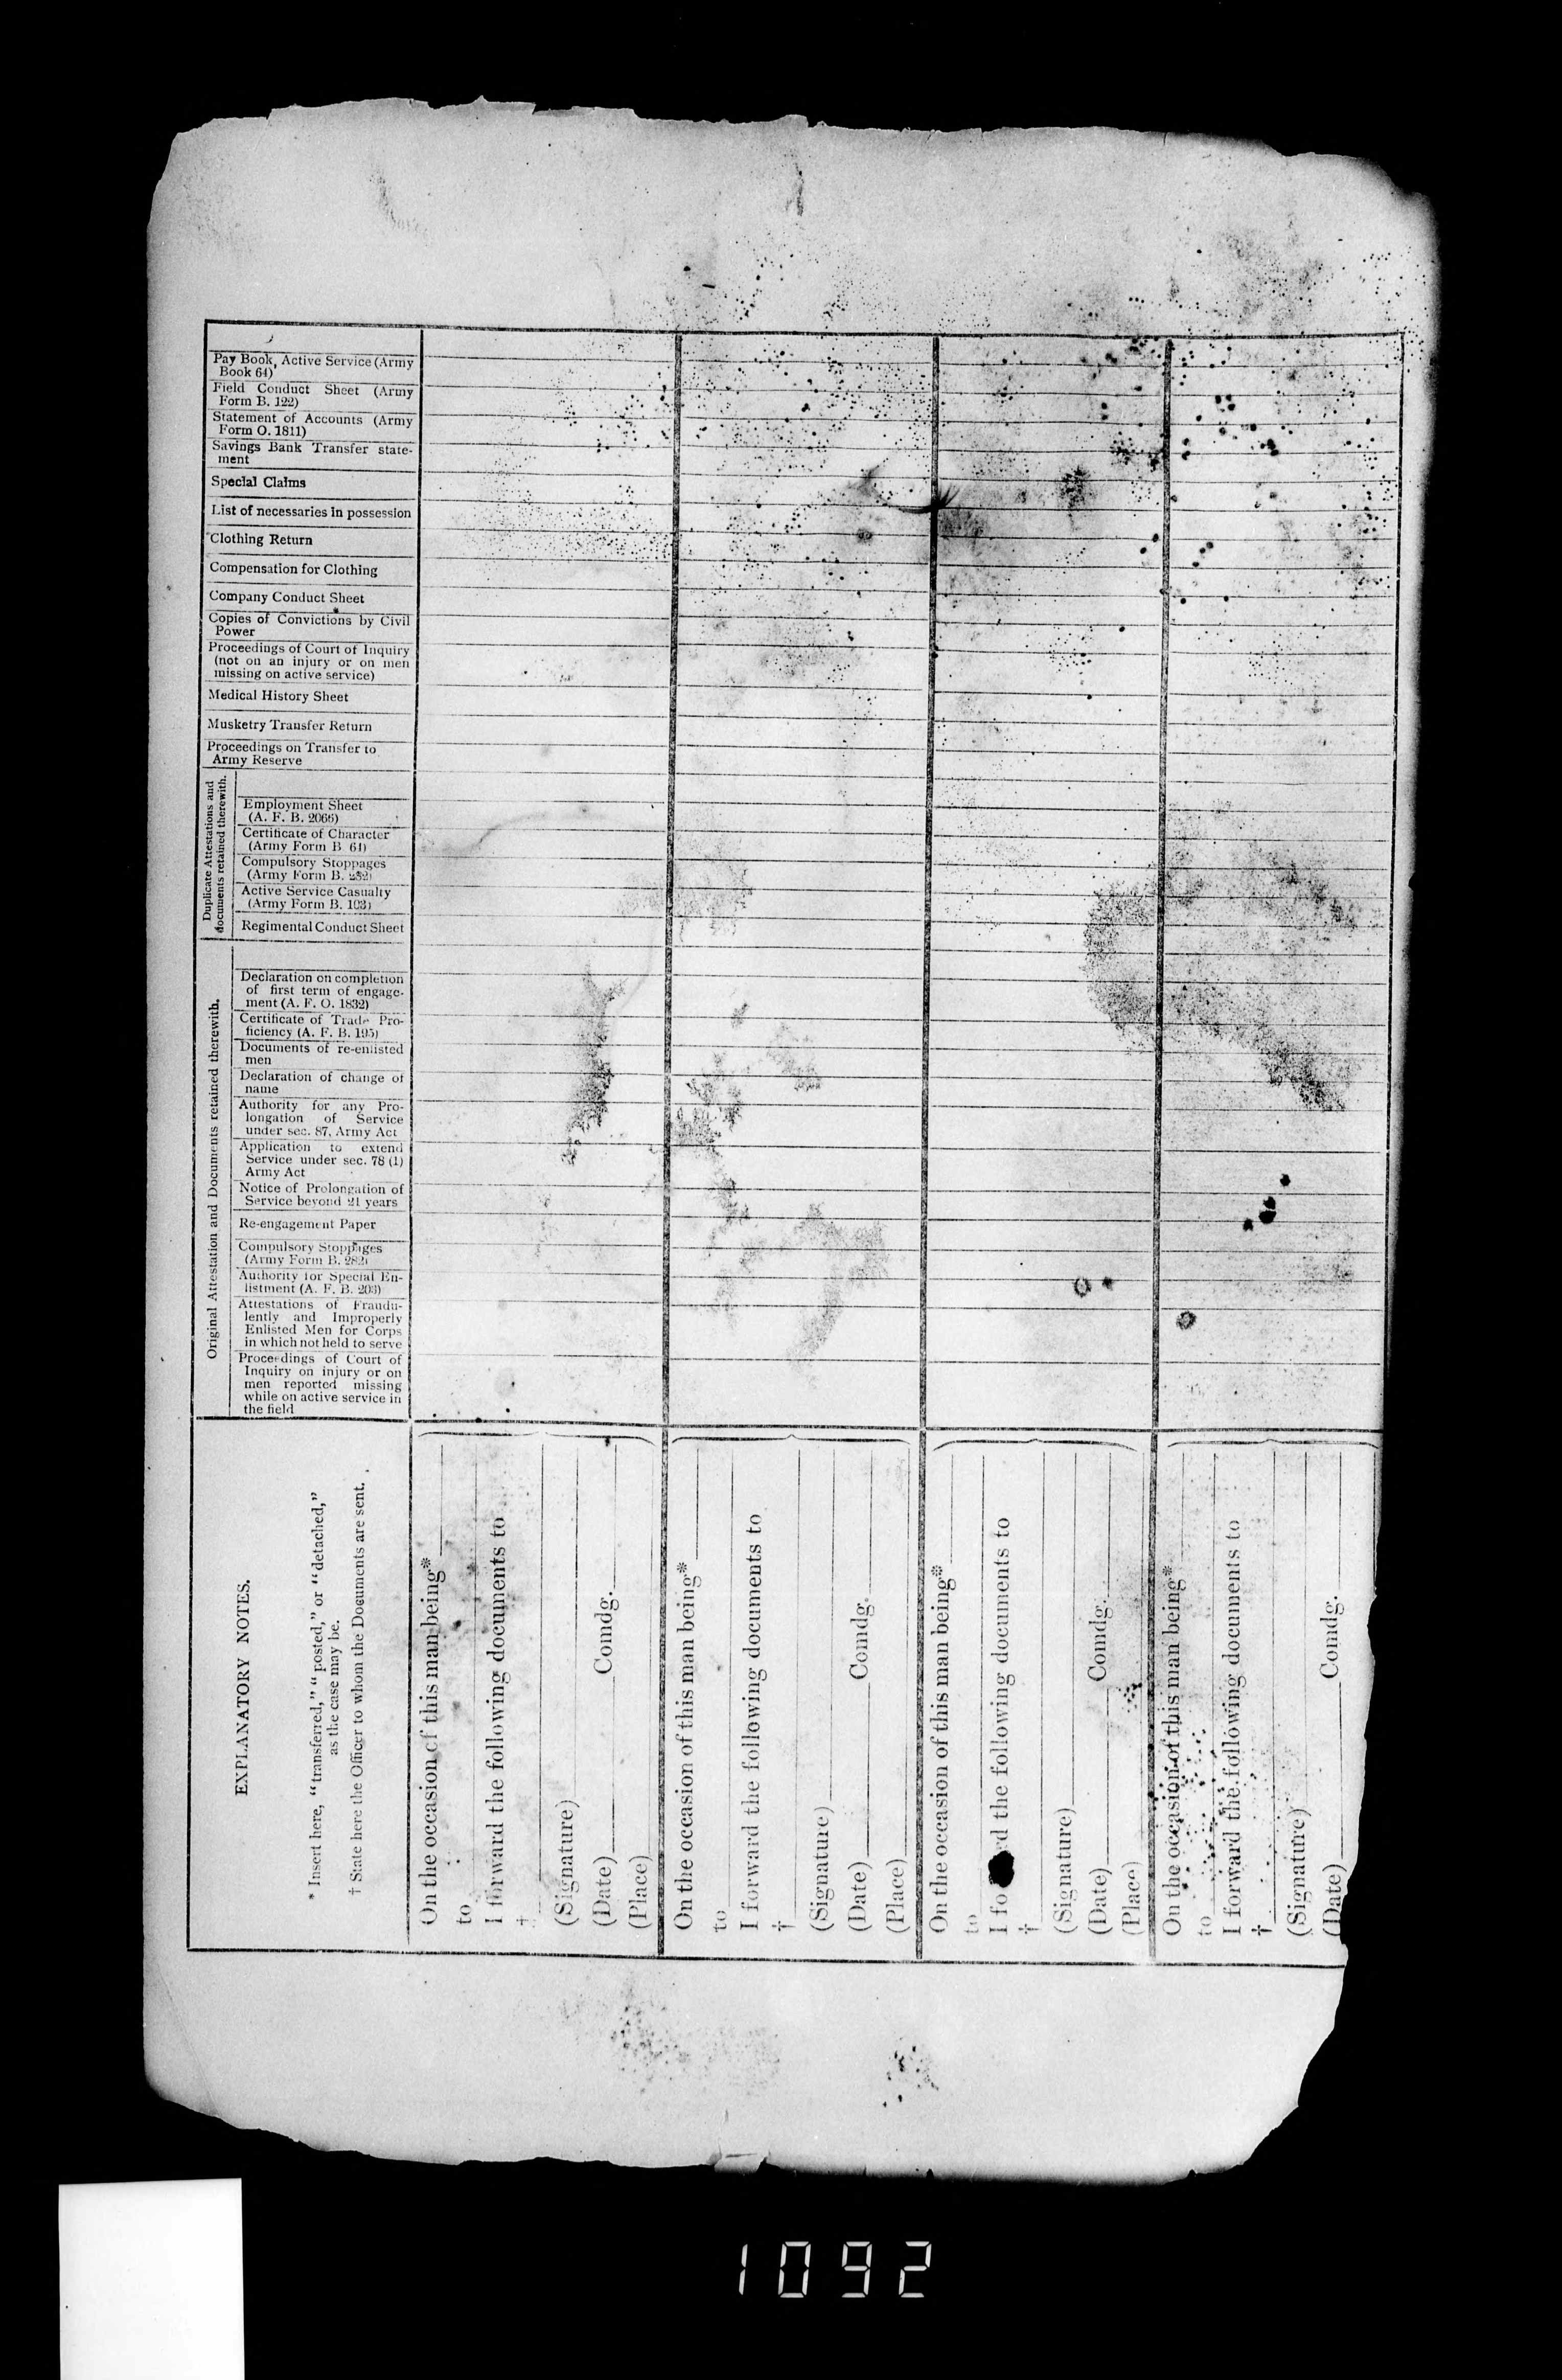 Pay Book, Active Service (Army
Book 64)
Field Conduct Sheet (Army
Form B. 122)
Statement of Accounts (Army
Form O. 1811)
Savings Bank Transfer state-
ment
Special Claims
List of necessaries in possession
Clothing Return
Compensation for Clothing
Company Conduct Sheet
Copies of Convictions by Civil
Power
Proceedings of Court of Inquiry
(not on an injury or on men
missing on active service)
Medical History Sheet
Musketry Transfer Return
Proceedings on Transfer to
Army Reserve
Duplicate Attestations and
documents retained therewith.
Employment Sheet
(A. F. B. 2066)
Certificate of Character
(Army Form B 64)
Compulsory Stoppages
(Army Form B. 282)
Active Service Casualty
(Army Form B. 103)
Regimental Conduct Sheet
Original Attestation and Documents retained therewith.
Declaration on completion
of first term of engage-
ment (A. F. O. 1832)
Certificate of Trade Pro-
ficiency (A. F. B. 195)
Documents of re-enlisted
men
Declaration of change of
name
Authority for any Pro-
longation of Service
under sec. 87, Army Act
Application to extend
Service under sec. 78 (1)
Army Act
Notice of Prolongation of
Service beyond 21 years
Re-engagement Paper
Compulsory Stoppages
(Army Form B. 282)
Authority for Special En-
listment (A. F. B. 203)
Attestations of Fraudu-
lently and Improperly
Enlisted Men for Corps
in which not held to serve
Proceedings of Court of
Inquiry on injury or on
men reported missing
while on active service in
the field
EXPLANATORY NOTES.
* Insert here, "transferred," "posted," or "detached,"
as the case may be.
† State here the Officer to whom the Documents are sent.
On the occasion of this man being*
to
I forward the following documents to
†
(Signature)
(Date) Comdg.
(Place)
On the occasion of this man being*
to
I forward the following documents to
†
(Signature)
(Date) Comdg.
(Place)
On the occasion of this man being*
to
I fo rd the following documents to
†
(Signature)
(Date) Comdg.
(Place)
On the occasion of this man being*
to
I forward the following documents to
†
(Signature)
(Date) Comdg.
1092